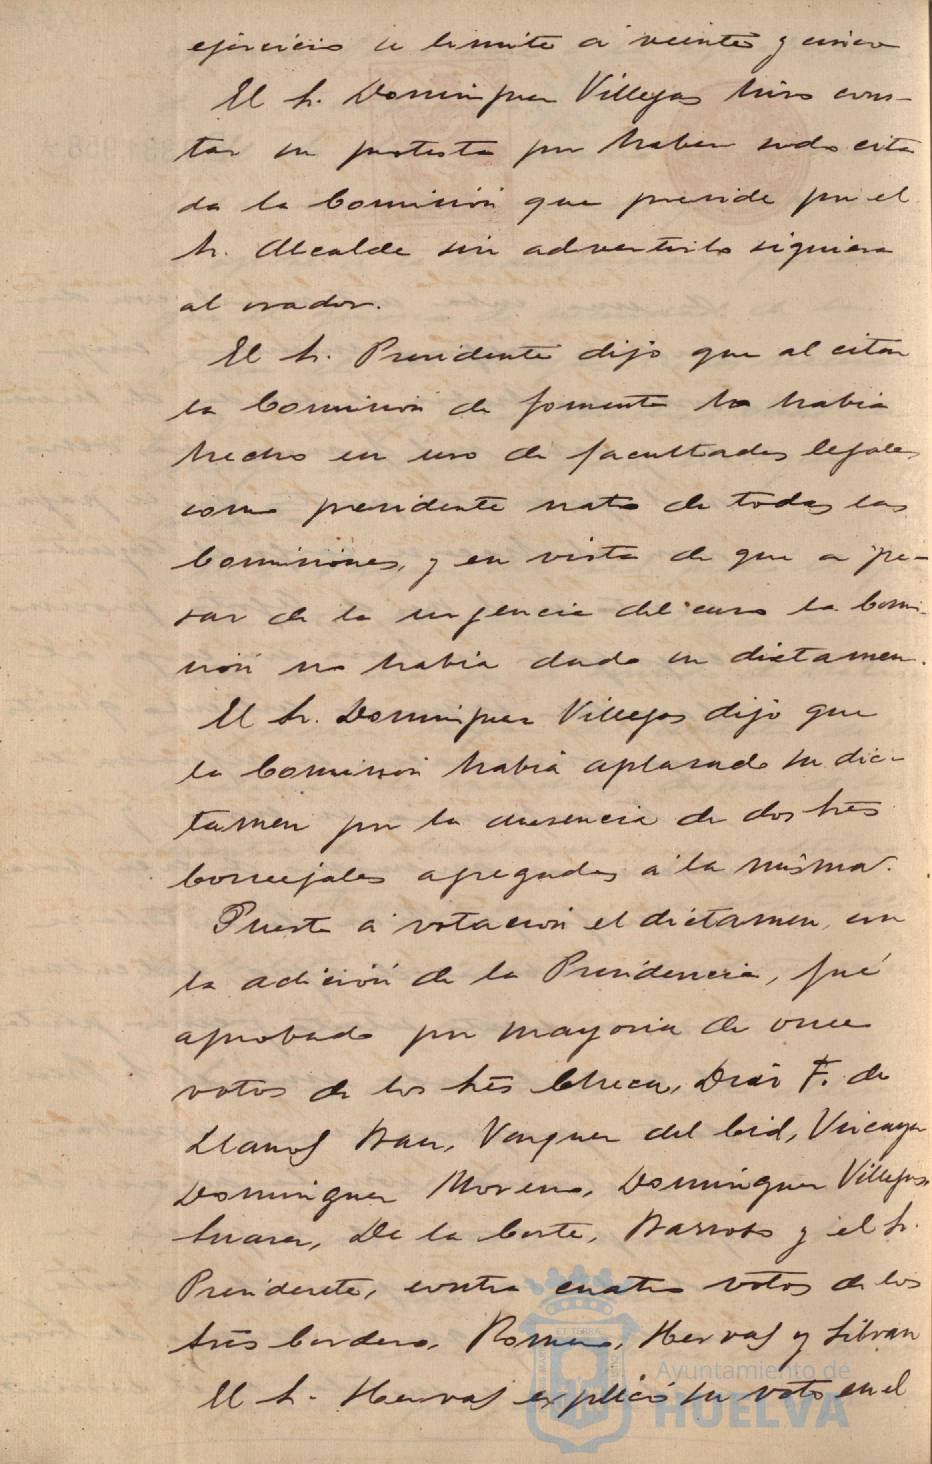 ejercicio se limite á veinte y cinco
El Sr. Dominguez Villegas hizo cons-
tar su protesta por haber sido cita
da la Comisión que preside por el
Sr. Alcalde sin advertirlo siquiera
al orador.
El Sr. Presidente dijo que al citar
la Comision de fomento lo habia
hecho en uso de facultades legales
como presidente nato de todas las
Comisiones, y en vista de que a pe-
sar de la urgencia del caso la Comi-
sión no habia dado su dictamen.
El Sr. Dominguez Villegas dijo que
la Comision había aplazado su dic-
tamen por la ausencia de dos Sres
Concejales agregados á la misma.
Puesto á votacion el dictamen, con
la adición de la Presidencia, fué
aprobado por mayoria de once
votos de los Sres Checa, Diaz F. de
Llanos, Vazquez del Cid, Vizcaya
Dominguez Moreno, Dominguez Villegas,
Suarez, De la Corte, Barroso y el Sr.
Presidente, contra cuatro votos de los
Sres Cordero, Romero, Hervas y Silvan
El Sr. Hervas explicó su voto en el
Ayuntamiento de
HUELVA